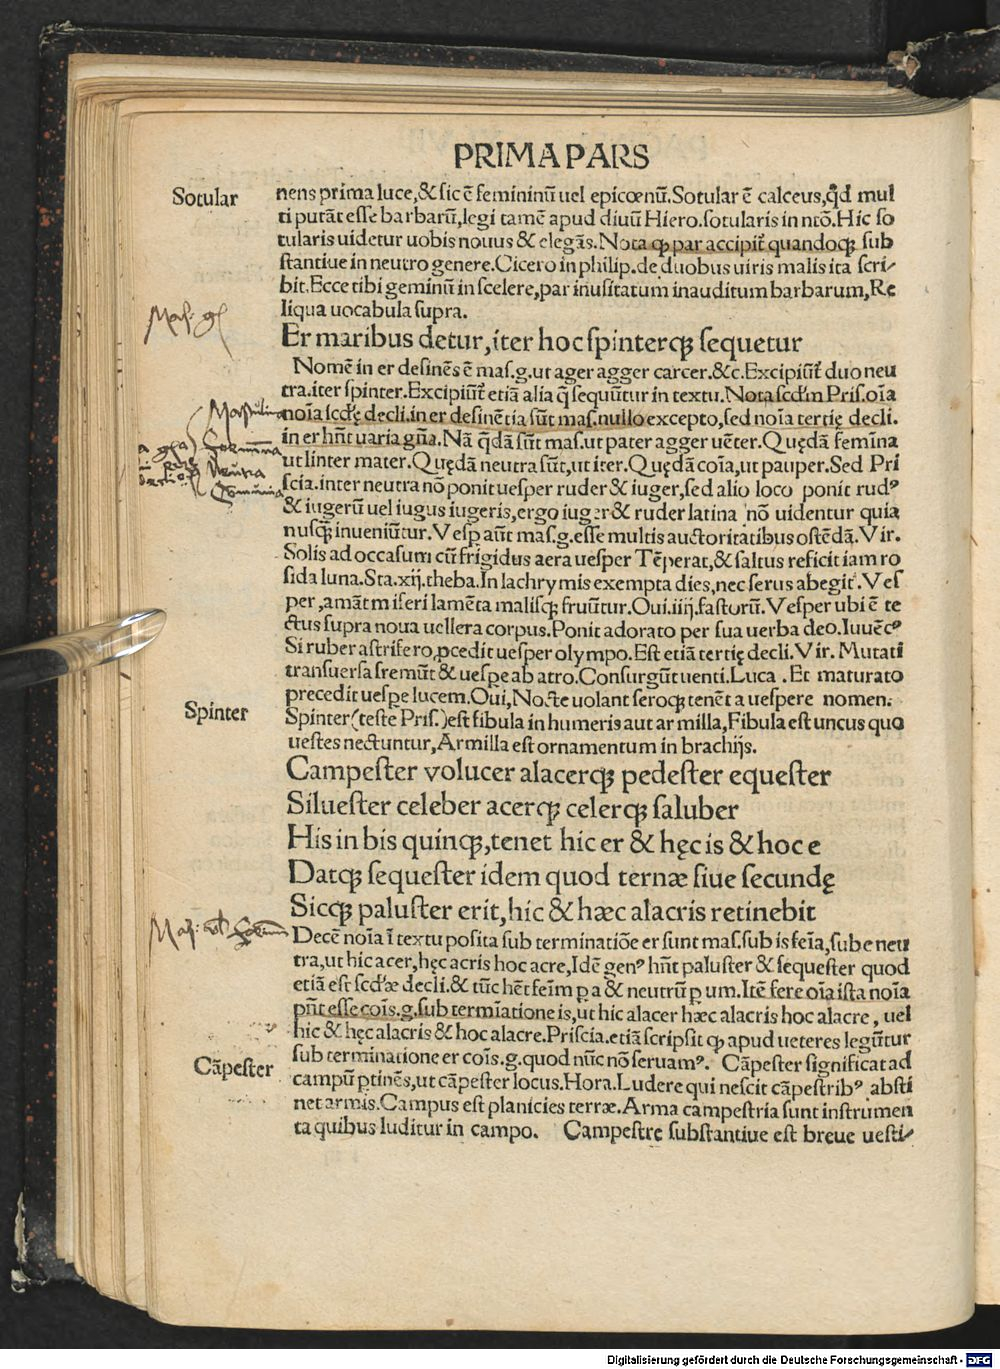 PRIMA PARS
Sotular
nens prima luce,& sic ē femininū uel epicœnū.Sotular ē calceus,qd̄ mul
ti putāt esse barbarū,legi tamē apud diuū Hiero.sotularis in ntō.Hic so
tularis uidetur uobis nouus & elegās.Nota ꝙ par accipit̄ quandoqꝫ sub
stantiue in neutro genere.Cicero in philip.de duobus uiris malis ita scri⸗
bit.Ecce tibi geminū in scelere,par inusitatum inauditum barbarum,Re
liqua uocabula supra.
Er maribus detur,iter hoc spinterqꝫ sequetur
Nomē in er desinēs ē mas.g.ut ager agger carcer.&c.Excipiūt̄ duo neu
tra.iter spinter.Excipiūt̄ etiā alia q̄ sequūtur in textu.Nota scd̄m Pris.oīa
noīa scdę decli.in er desinētia sūt mas.nullo excepto,sed noīa tertię decli.
in er hn̄t uaria gn̄a.Nā q̄dā sūt mas.ut pater agger uēter.Quędā femīna
ut linter mater.Quędā neutra sūt,ut iter.Quędā coīa,ut pauper.Sed Pri
scia.inter neutra nō ponit uesper ruder & iuger,sed alio loco ponit rudꝰ
& iugerū uel iugus iugeris,ergo iuger & ruder latina nō uidentur quia
nusqꝫ̄ inueniūtur.Vesꝑ aūt mas.g.esse multis auctoritatibus ostēdā.Vir.
Solis ad occasum cū frigidus aera uesper Tēperat,& saltus reficit iam ro
sida luna.Sta.xij.theba.In lachrymis exempta dies,nec serus abegit.Ves
per,amāt miseri lamēta malisqꝫ fruūtur.Oui.iiij.fastorū.Vesper ubi ē te
ctus supra noua uellera corpus.Ponit adorato per sua uerba deo.Iuuēcꝰ
Si ruber astrifero,ꝓcedit uesper olympo.Est etiā tertię decli.Vir. Mutati
transuersa fremūt & uespe ab atro.Consurgūt uenti.Luca .Et maturato
precedit uespe lucem.Oui,Nocte uolant seroqꝫ tenēt a uespere nomen.
Spinter
Spinter(teste Pris.)est fibula in humeris aut armilla,Fibula est uncus quo
uestes nectuntur,Armilla est ornamentum in brachijs.
Campester volucer alacerqꝫ pedester equester
Siluester celeber acerqꝫ celerqꝫ saluber
His in bis quinqꝫ,tenet hic er & hęc is & hoc e
Datqꝫ sequester idem quod ternæ siue secundę
Sicqꝫ paluster erit,hic & hæc alacris retinebit
Decē noīa ī textu posita sub terminatiōe er sunt mas.sub is feīa,sub e neu
tra,ut hic acer,hęc acris hoc acre,Idē genꝰ hn̄t paluster & sequester quod
etiā est scd̄æ decli.& tūc hēt feīm ꝑ a & neutrū ꝑ um.Itē fere oīa ista noīa
pn̄t esse coīs.g.sub termīatione is,ut hic alacer hæc alacris hoc alacre, uel
hic & hęc alacris & hoc alacre.Priscia.etiā scripsit ꝙ apud ueteres legūtur
sub terminatione er coīs.g.quod nūc nō seruamꝰ. Cāpester significat ad
Cāpester
campū ꝑtinēs,ut cāpester locus.Hora.Ludere qui nescit cāpestribꝰ absti
net armis.Campus est planicies terræ.Arma campestria sunt instrumen
ta quibus luditur in campo. Campestre substantiue est breue uesti⸗
Digitalisierung gefördert durch die Deutsche Forschungsgemeinschaft - DFG